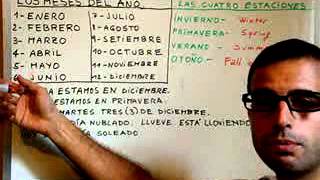 LOS MESES DEL AÑO
1- ENERO
2- FEBRERO
3- MARZO
4- ABRIL
5- MAYO
JUNIO
7- JULIO
8- AGOSTO
9- SETIEMBRE
10- OCTUBRE
11- NOVIEMBRE
12- DICIEMBRE
LAS CUATRO ESTACIONES
INVIERNO- Winter
PRIMAVERA- Spring
VERANO- Summ
OTOÑO- Fall
ESTAMOS EN DICIEMBRE.
ESTAMOS EN PRIMAVERA.
MARTES TRES (3) DE DICIEMBRE.
NUBLADO. LLUEVE ESTÁ LLOVIEND
SOLEADO